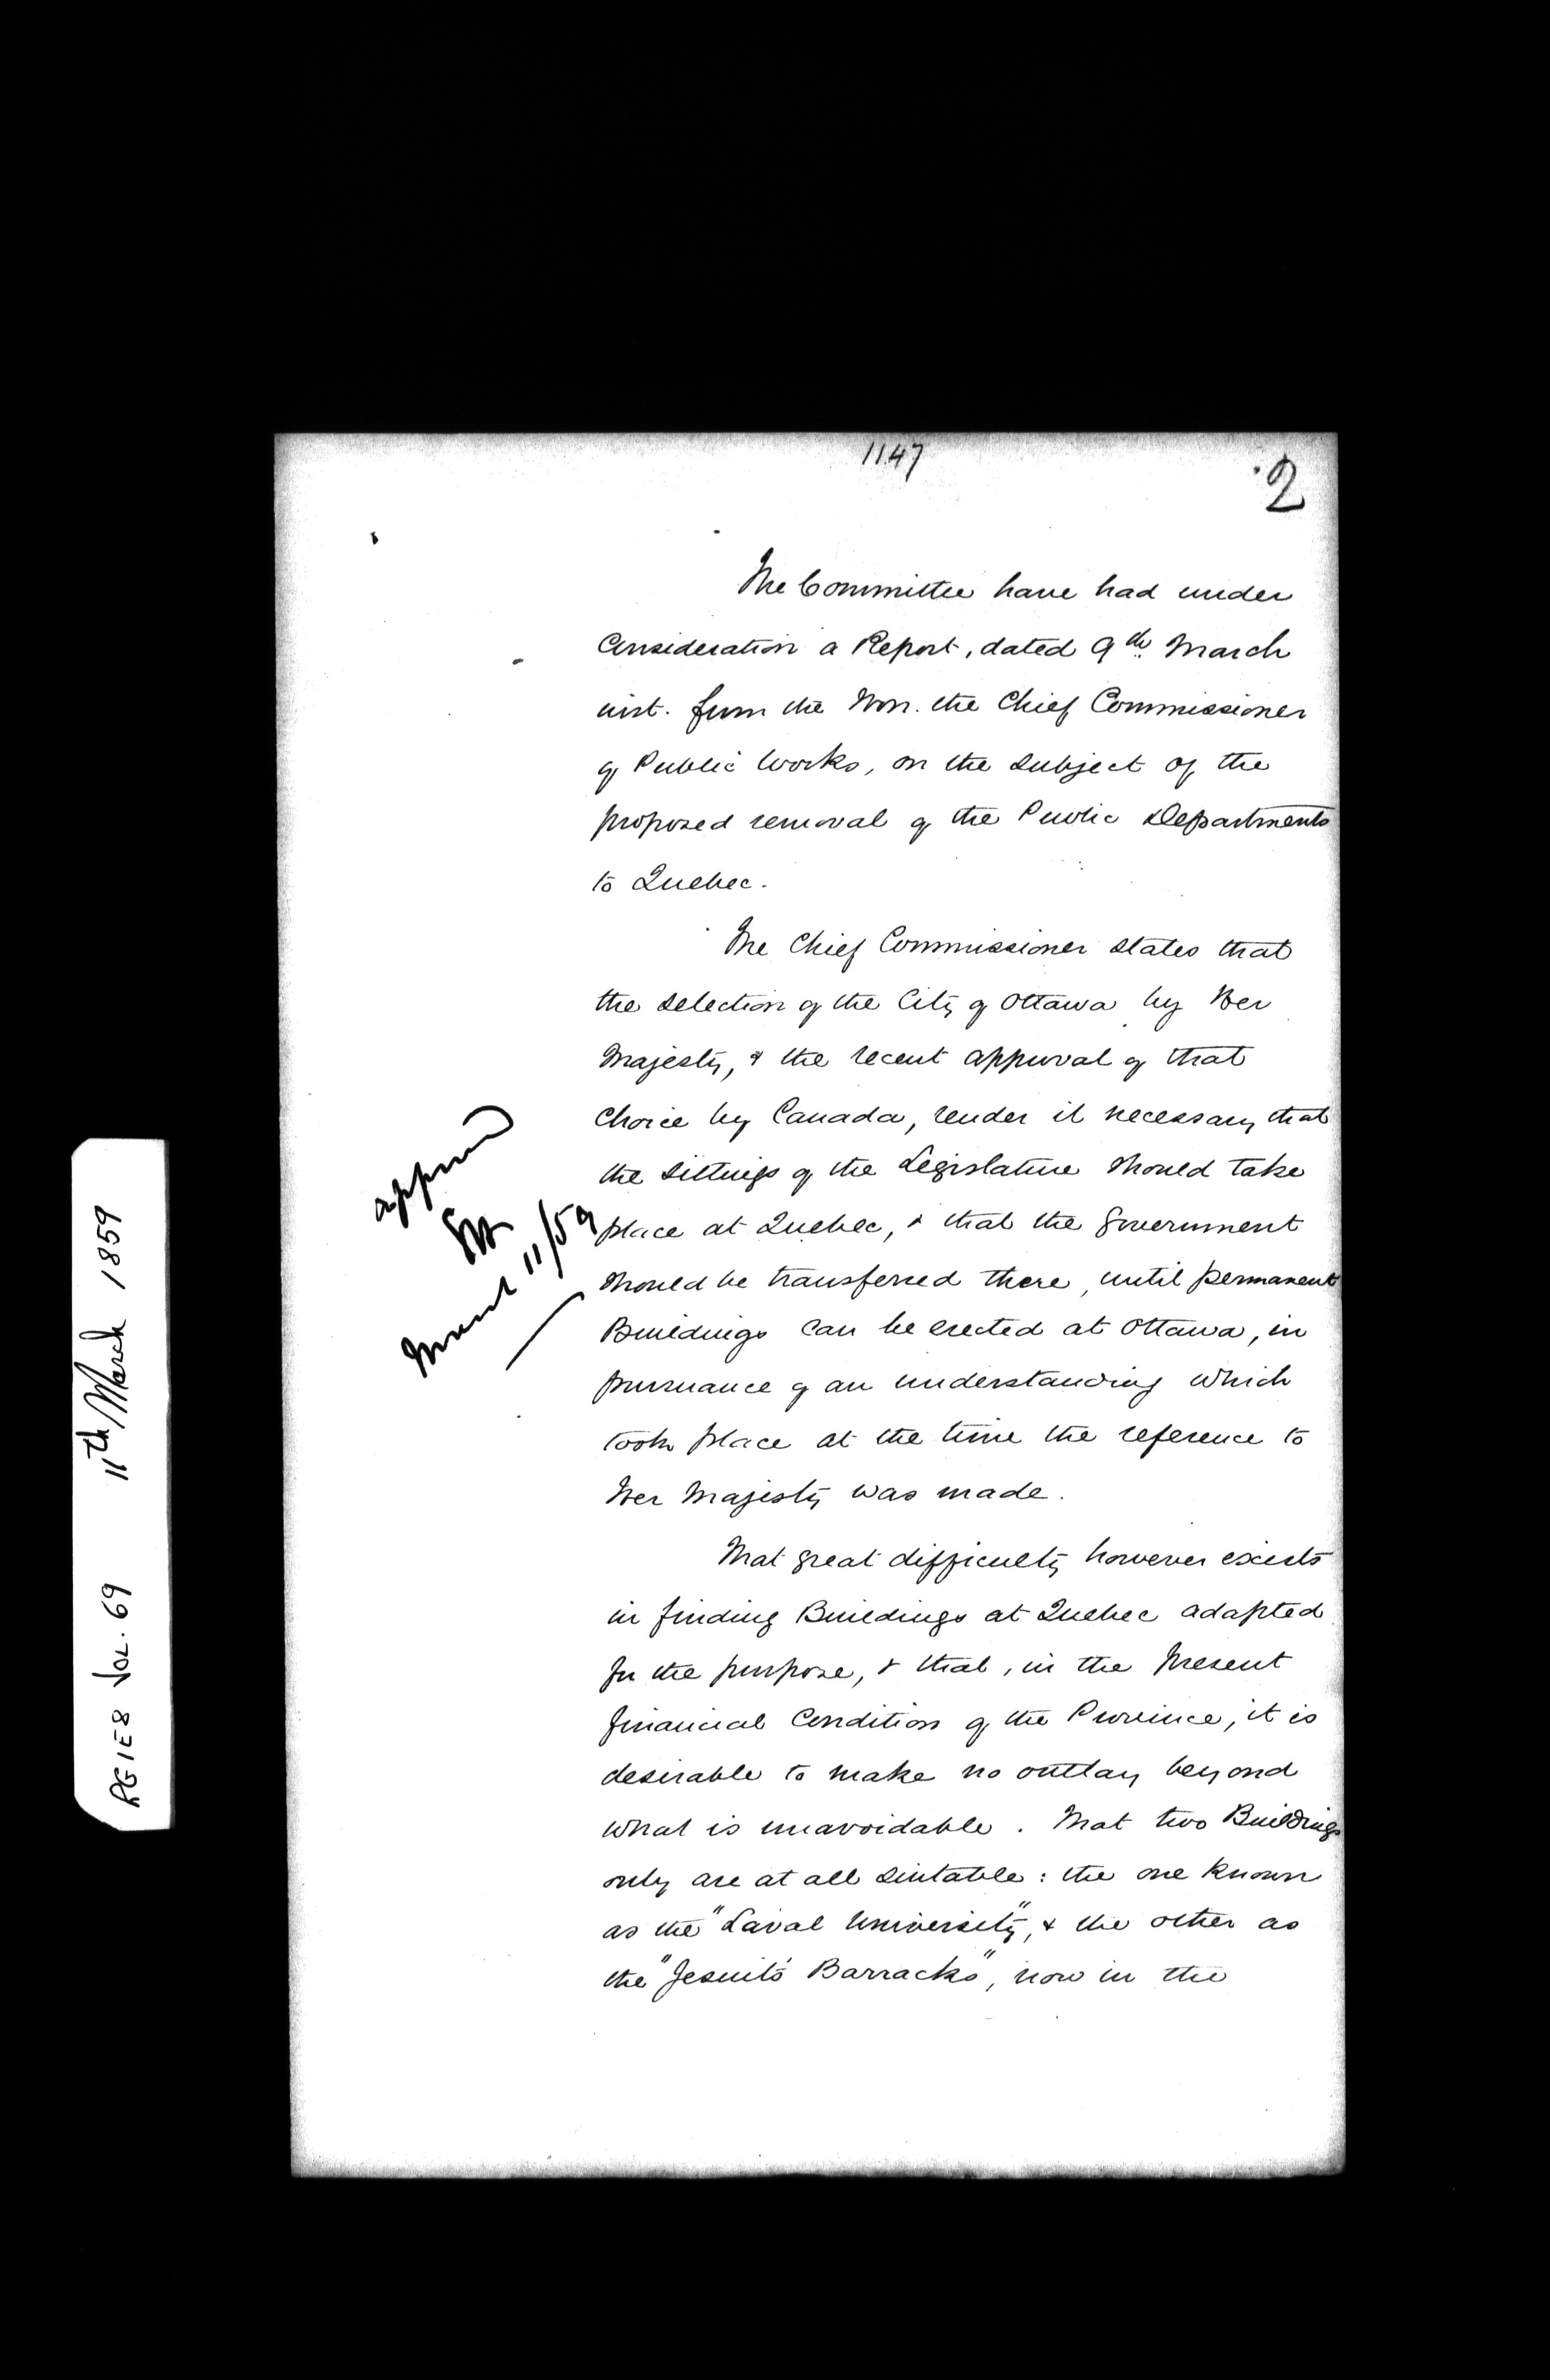 1147
2
The Committee have had under
Consideration a Report, dated 9th March
inst. from the Hon. the Chief Commissioner
of Public Works, on the subject of the
proposed removal of the Public Departments
to Quebec.
The Chief Commissioner states that
the selection of the City of Ottawa by Her
Majesty, & the recent approval of that
Choice by Canada, render it necessary that
the sittings of the Legislature should take
place at Quebec, & that the Government
should be transferred there, until permanent
Buildings can be erected at Ottawa, in
pursuance of an understanding which
took place at the time the reference to
Her Majesty was made.
That great difficulty however exists
in finding Buildings at Quebec adapted
for the purpose, & that, in the present
financial Condition of the Province, it is
desirable to make no outlay beyond
what is unavoidable. That two Buildings
only are at all suitable: the one known
as the "Laval University", & the other as
the "Jesuits' Barracks", now in the
approved
March 11/59
RG1E8 Vol. 69 11th March 1859